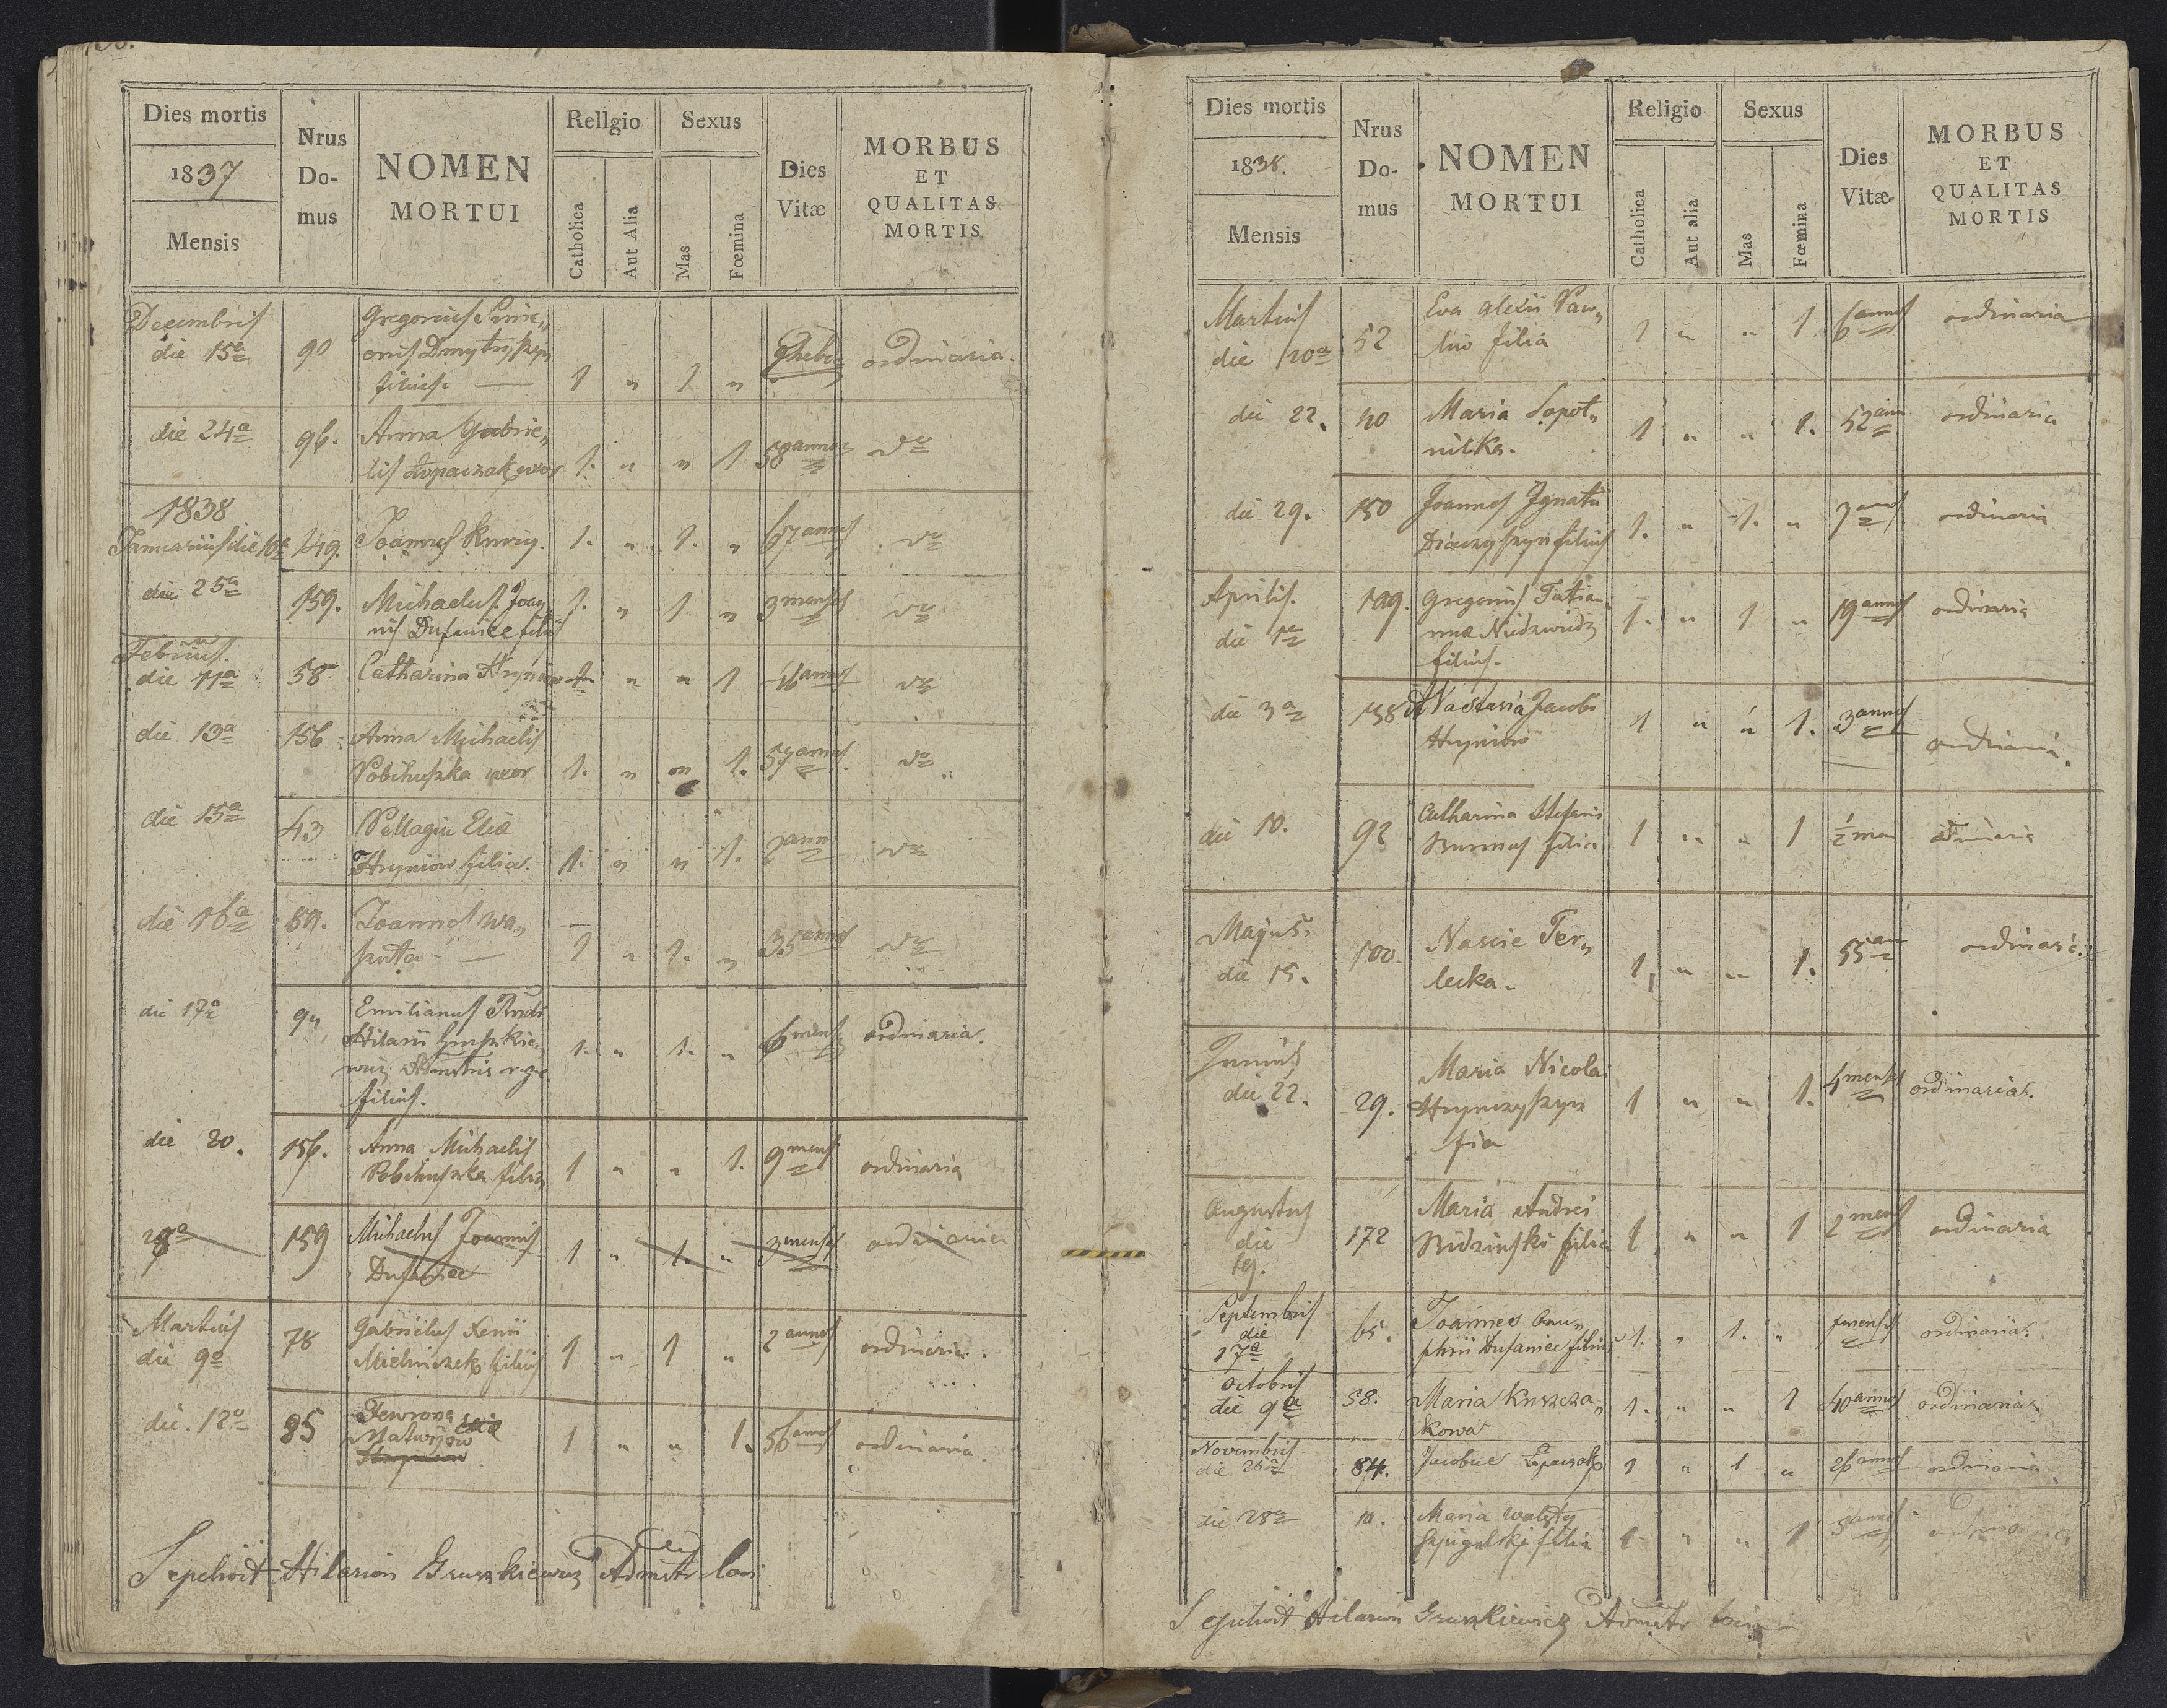 Dies mortis
1837
Mensis
Nrus
Do-
mus
NOMEN
MORTUI
Rellgio
Catholica
Aut Alia
Sexus
Mas
Fœmina
Dies
Vitæ
MORBUS
ET
QUALITAS
MORTIS
Decembris
die 15a 90 Gregorius Sime„
onis Dmytryszyn
filius. 1 „ 1 „ ordinaria.
die 24a 96. Anna Gabrie„
lis Łopaczak uxor 1. „ „ 1. 58 annor do
1838
Januarius die 10a 149. Joannes 1. „ 1. „ 67 annos do
die 25a 159. Michaelus Joan„
nis Dufaniec filius 1. „ 1. „ 3 menses do
Februus.
die 11a 58 Catharina Hryniow 1 „ „ 1 16 annos do
die 13a 156 Anna Michaelis
Pobihuszka uxor 1. „ „ 1. 57 annos. do
die 15a 43 Pellagia Eliæ
Hryniow filia. 1. „ „ 1. 2 ann do
die 16a 89. Joannes Wa„
szuta 1 „ 1. „ 35 annos do
die 17a 94 Emilianus
Hilarii Gruszkie„
wicz Admstris
filius. 1. „ 1. „ 6 mens ordinaria.
die 20. 156. Anna Michaelis
Pobihuszka filia 1 „ „ 1. 9 mens ordinaria
28a 159 Michaelus Joannis
Dufaniec 1 „ 1. „ 3 menses ordinaria
Martius
die 9a 78 Gabrielus Xenii
Mielniczek filius 1 „ 1 „ 2 annos ordinaria.
die. 12a 85 Fewrona
Matwijow
1 „ „ 1. 56 annos ordinaria.
Sepelivit Hilarion Gruszkiewicz Admstr loci
Dies mortis
1838.
Mensis
Nrus
Do-
mus
NOMEN
MORTUI
Religio
Catholica
Aut alia
Sexus
Mas
Fœmina
Dies
Vitæ
MORBUS
ET
QUALITAS
MORTIS
Martius
die 10a 52 Eva Alexii Paw„
liw filia 1 „ „ 1 6 annos ordinaria
die 22. 40 Maria Sopot„
nicka. 1 „ „ 1. 52 ann ordinaria
die 29. 150 Joannes Ignatii
Diaczyszyn filius 1. „ 1. „ 3 ordinaria
Aprilis.
die 1a 199. Gregorius Tatian„
næ Niedzwiedz
filius. 1. „ 1 „ 19 annos ordinaria
die 3a 138 Nastasia Jacobi
Hryniow 1 „ „ 1. 3 annos ordinaria.
die 10. 92 Catharina Stefani
Burnas filia 1 „ „ 1 1/2 men ordinaria
Majus.
die 15. 100. Nascie Ter„
lecka. 1, „ „ 1. 55 an ordinaria.
Junius
die 22. 29. Maria Nicolai
Hrynczyszyn
fia 1 „ „ 1. 4 menses ordinaria.
Augustus
die
19. 172 Maria Andrei
Budzinski filia 1 „ „ 1 2 mens ordinaria
Septembris
die
17a 65. Joannes Onu„
phrii Dufaniec filius 1. „ 1. „ menses ordinaria.
Octobris
die 9a 58. Maria Kuszcza„
kowa 1. „ „ 1 40 annos ordinaria.
Novembris
die 25a 84. Jacobus Łopaczak 1 „ 1 „ 26 annos ordinaria.
die 28a 10. Maria
Szpigulski filia 1 „ „ 1 5 annos ordinaria
Sepelivit Hilarion Gruszkiewicz Admstr loci